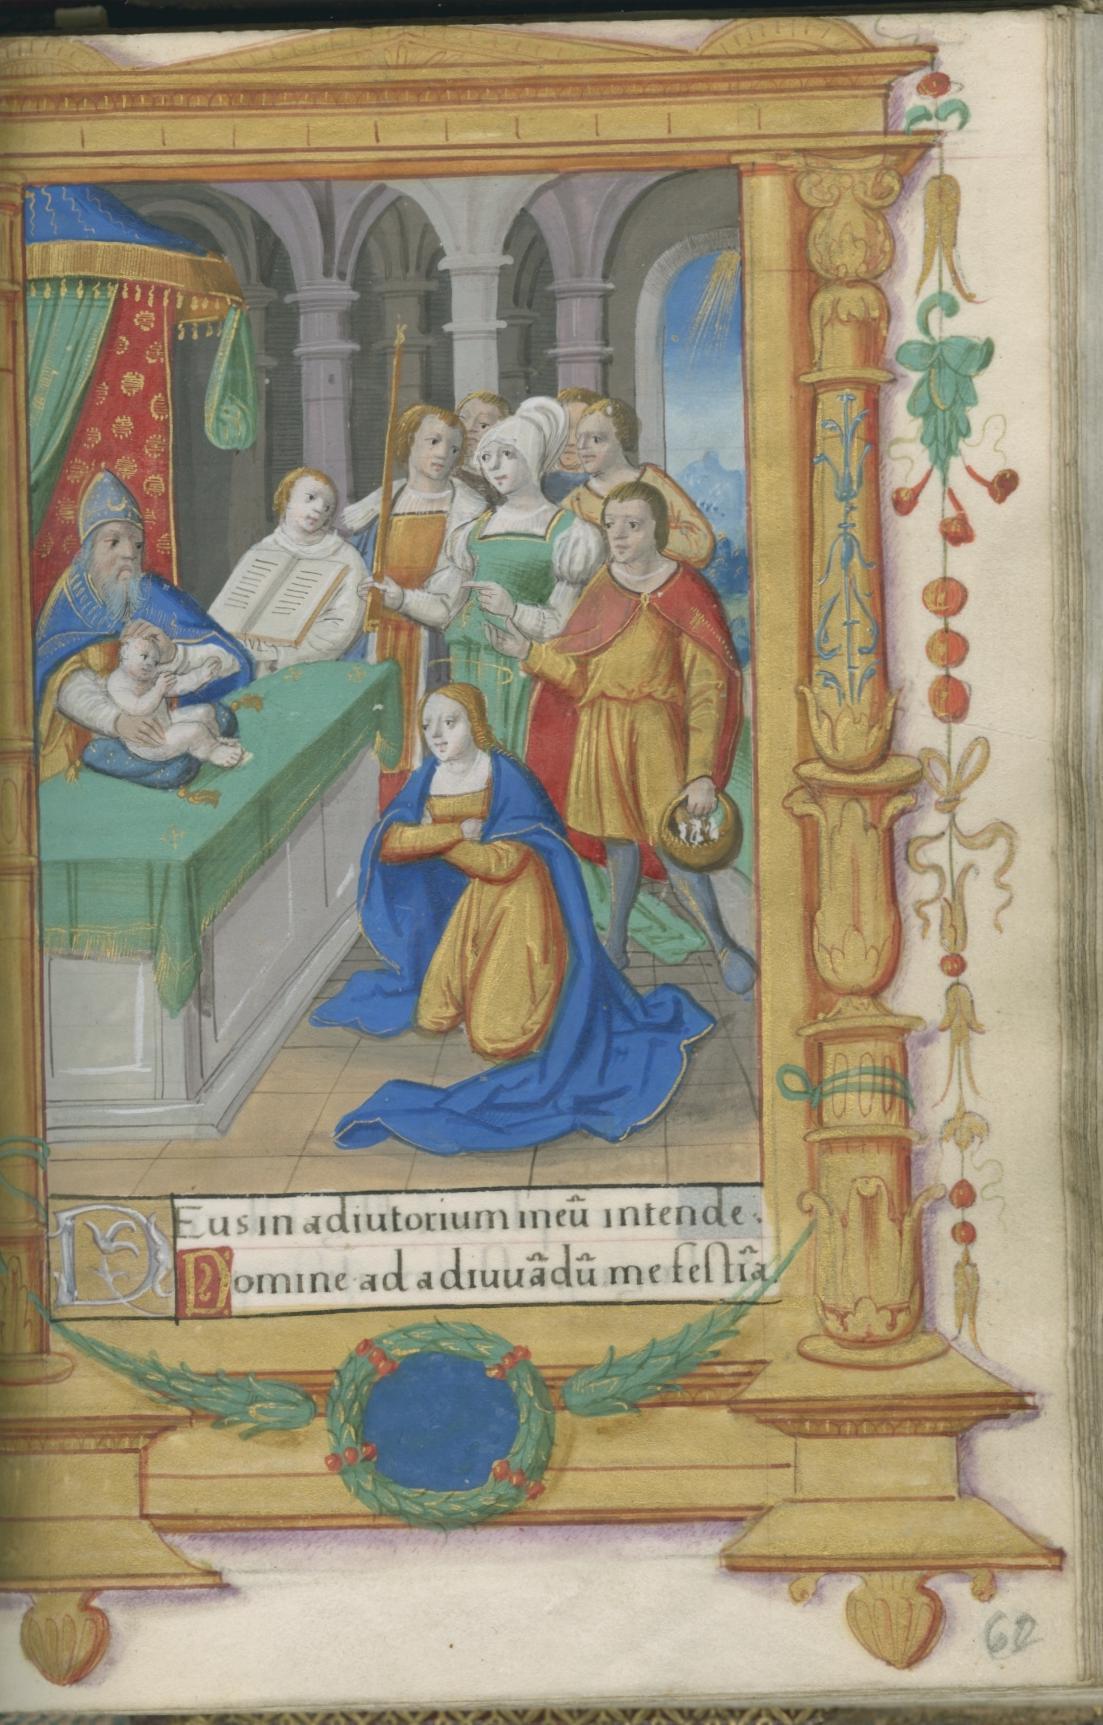 Deus in adiutorium meũ intende.
Domine ad adiuuãdũ me feſtĩa.
62